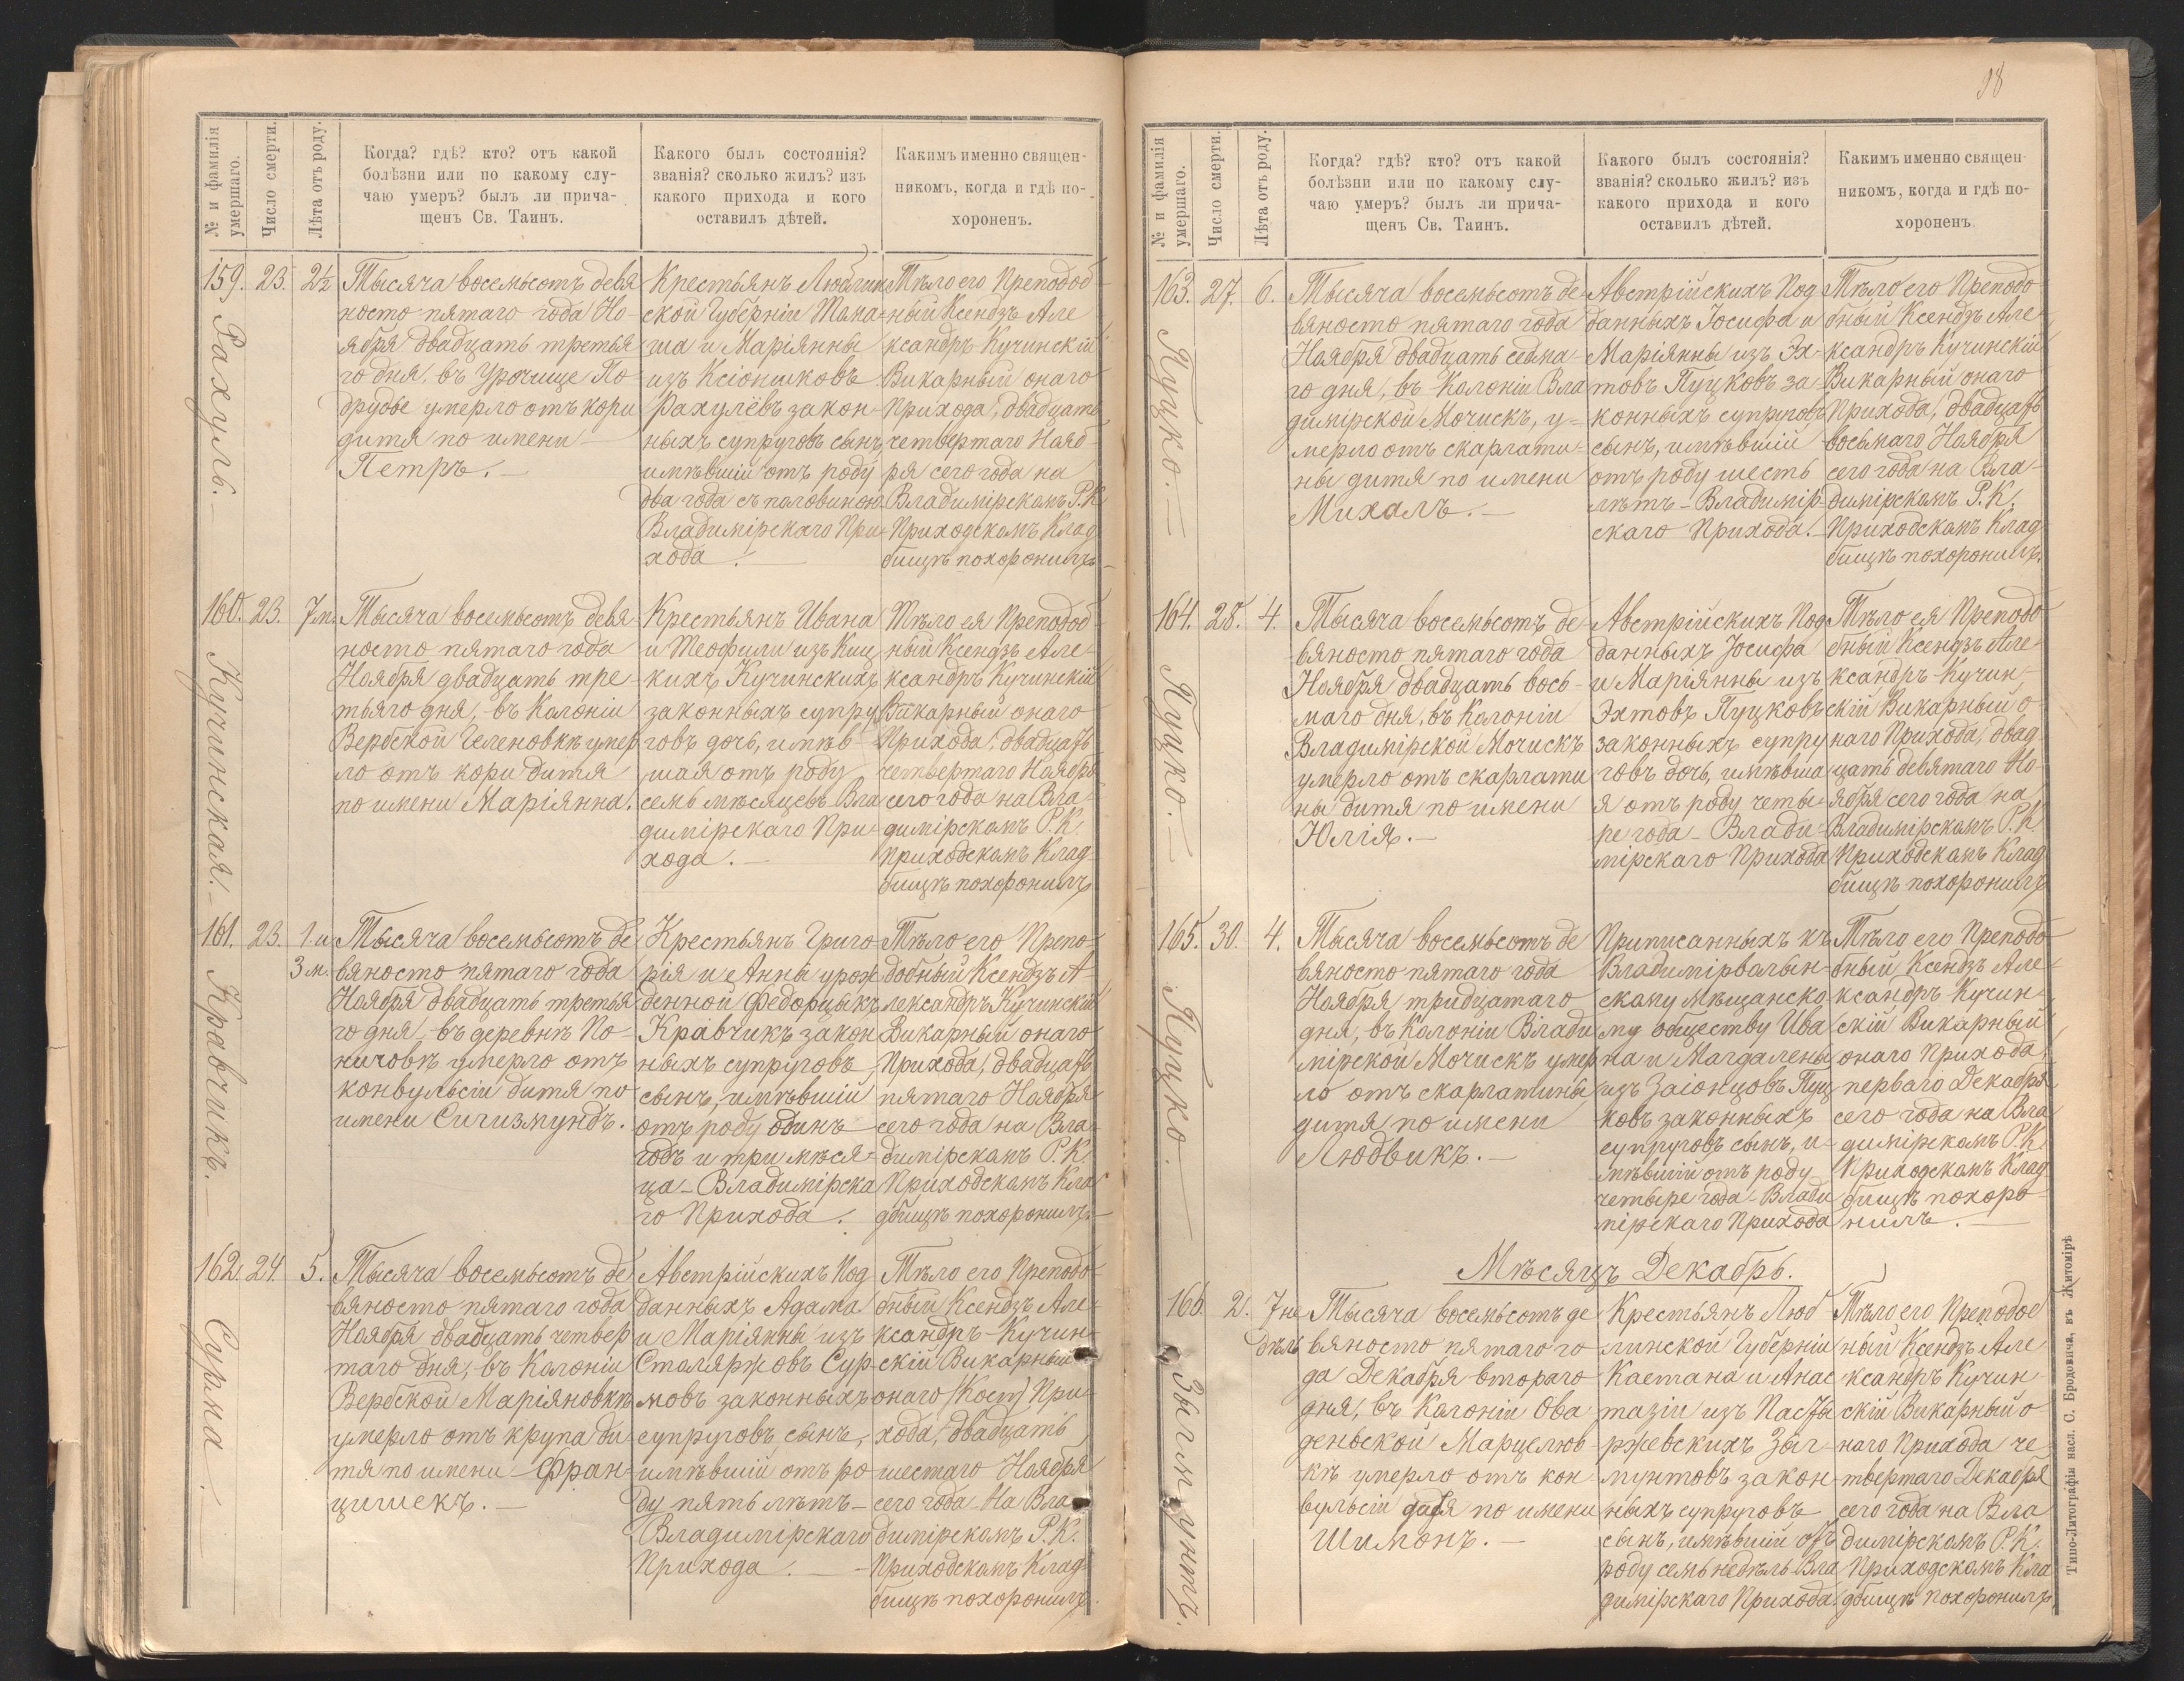 № и фамилія
умершаго.
Число смерти.
Лѣта отъ роду.
Когда? гдѣ? кто? отъ какой
болѣзни или по какому слу-
чаю умеръ? былъ ли прича-
щенъ Св. Таинъ.
Какого былъ состоянія?
званія? сколько жилъ? изъ
какого прихода и кого
оставилъ дѣтей.
Какимъ именно священ-
никомъ, когда и гдѣ по-
хороненъ.
159.
Рахуль.
23.
2½
Тысяча восемьсотъ девя
носто пятаго года Но-
ября двадцать третья
го дня, въ Урочище По-
друбе умерло отъ кори
дитя по имени
Петръ.
Крестьянъ Люблин
ской Губерніи Тома-
ша и Маріянны
изъ Ксіонжковъ
Рахулёвъ закон-
ныхъ супруговъ сынъ,
имѣвшій отъ роду
два года съ половиною
Владимірскаго При-
хода.
Тѣло его Преподоб
ный Ксендзъ Але
ксандръ Кучинскій
Викарный онаго
Прихода, двадцать
четвертаго Нояб-
ря сего года на
Владимірскомъ Р.К.
Приходскомъ Клад
бищѣ похоронилъ
160.
Кучинская.
23.
7 м.
Тысяча восемьсотъ девя
носто пятаго года
Ноября двадцать тре-
тьяго дня, въ Колоніи
Вербской Геленовкѣ умер
ло отъ кори дитя
по имени Маріянна.
Крестьянъ Ивана
и Теофили изъ Киц
кихъ Кучинскихъ
законныхъ супру
говъ дочь, имѣв-
шая отъ роду
семь мѣсяцевъ Вла
димірскаго При-
хода.
Тѣло ея Преподоб
ный Ксендзъ Але-
ксандръ Кучинскій
Викарный онаго
Прихода, двадцать
четвертаго Ноября
сего года на Вла-
димірскомъ Р.К.
Приходскомъ Клад
бищѣ похоронилъ
161.
Кравчикъ.
23.
1. и
3 м.
Тысяча восемьсотъ де
вяносто пятаго года
Ноября двадцать третья
го дня, въ деревнѣ По-
ничовѣ умерло отъ
конвульсіи дитя по
имени Сигизмундъ.
Крестьянъ Григо-
рія и Анны урож
денной Федорцыкъ
Кравчикъ закон
ныхъ супруговъ
сынъ, имѣвшій
отъ роду одинъ
годъ и три мѣся-
ца - Владимірска
го Прихода.
Тѣло его Препо-
добный Ксендзъ А-
лександръ Кучинскій
Викарный онаго
Прихода, двадцать
пятаго Ноября
сего года на Вла-
димірскомъ Р.К.
Приходскомъ Кла
дбищѣ похоронилъ
162.
Сурма.
24.
5.
Тысяча восемьсотъ де
вяносто пятаго года
Ноября двадцать четвер
таго дня, въ Колоніи
Вербской Маріяновкѣ
умерло отъ крупа ди
тя по имени Фран-
цишекъ.
Австрійскихъ Под
данныхъ Адама
и Маріянны изъ
Столяржовъ Сур-
мовъ законныхъ
супруговъ сынъ,
имѣвшій отъ ро
ду пять лѣтъ -
Владимірскаго
Прихода.
Тѣло его Преподо
бный Ксендзъ Але-
ксандръ Кучин-
скій Викарный
онаго (Кост) При-
хода, двадцать
шестаго Ноября
сего года на Вла-
димірскомъ Р.К.
Приходскомъ Клад-
бищѣ похоронилъ.
98
№ и фамилія
умершаго.
Число смерти.
Лѣта отъ роду.
Когда? гдѣ? кто? отъ какой
болѣзни или по какому слу-
чаю умеръ? былъ ли прича-
щенъ Св. Таинъ.
Какого былъ состоянія?
званія? сколько жилъ? изъ
какого прихода и кого
оставилъ дѣтей.
Какимъ именно священ-
никомъ, когда и гдѣ по-
хороненъ.
163.
Пуцко.
27.
6.
Тысяча восемьсотъ де-
вяносто пятаго года
Ноября двадцать седьма-
го дня, въ Колоніи Вла
димірской Мочискъ, у-
мерло отъ скарлати-
ны дитя по имени
Михалъ.
Австрійскихъ Под
данныхъ Іосифа и
Маріянны изъ Эх-
товъ Пуцковъ за-
конныхъ супруговъ
сынъ, имѣвшій
отъ роду шесть
лѣтъ - Владимір-
скаго Прихода.
Тѣло его Преподо
бный Ксендзъ Але
ксандръ Кучинскій
Викарный онаго
Прихода, двадцать
восьмаго Ноября
сего года на Вла-
димірскомъ Р.К.
Приходскомъ Клад
бищѣ похоронилъ.
164.
Пуцко.
28.
4.
Тысяча восемьсотъ де
вяносто пятаго года
Ноября двадцать вось-
маго дня, въ Колоніи
Владимірской Мочискъ
умерло отъ скарлати
ны дитя по имени
Юлія.
Австрійскихъ Под
данныхъ Іосифа
и Маріянны изъ
Эхтовъ Пуцковъ
законныхъ супру
говъ дочь, имѣвша
я отъ роду четы-
ре года - Влади-
мірскаго Прихода
Тѣло ея Преподо
бный Ксендзъ Але-
ксандръ Кучин-
скій Викарный о-
наго Прихода, двад
цать девятаго Но-
ября сего года на
Владимірскомъ Р.К.
Приходскомъ Клад
бищѣ похоронилъ
165.
Пуцко.
30.
4.
Тысяча восемьсотъ де
вяносто пятаго года
Ноября тридцатаго
дня, въ Колоніи Влади
мірской Мочискъ умер
ло отъ скарлатины
дитя по имени
Людвикъ.
Приписанныхъ къ
Владимірволын-
скому Мѣщанско
му обществу Ива
на и Магдалены
изъ Заіонцовъ Пуц
ковъ законныхъ
супруговъ сынъ, и-
мѣвшій отъ роду
четыре года - Влади
мірскаго Прихода
Тѣло его Преподо
бный Ксендзъ Але
ксандръ Кучин-
скій Викарный
онаго Прихода,
перваго Декабря
сего года на Вла
димірскомъ Р.К.
Приходскомъ Клад
бищѣ похоро-
нилъ.
Мѣсяцъ Декабрь.
166.
Зыгмунтъ.
2.
7 не
дѣль
Тысяча восемьсотъ де
вяносто пятаго го
да Декабря втораго
дня, въ Колоніи Ова
деньской Марцелюв-
кѣ умерло отъ кон
вульсіи дитя по имени
Шимонъ.
Крестьянъ Люб-
линской Губерніи
Каетана и Анас
тазіи изъ Пасты
ржевскихъ Зыг-
мунтовъ закон-
ныхъ супруговъ
сынъ, имѣвшій отъ
роду семь недѣль Вла
димірскаго Прихода
Тѣло его Преподоб
ный Ксендзъ Але
ксандръ Кучин-
скій Викарный о
наго Прихода че
твертаго Декабря
сего года на Вла
димірскомъ Р.К.
Приходскомъ Кла
дбищѣ похоронилъ
Типо-Литографія насл. С. Бродовича, въ Житомірѣ